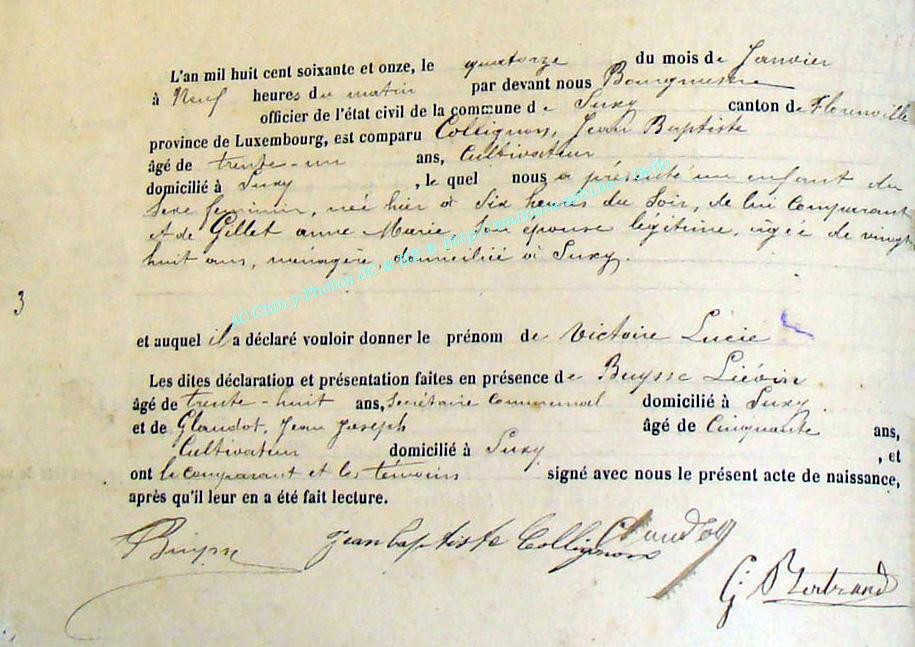 L'an mil huit cent soixante et onze, le quatorze du mois de Janvier
à Neuf heures du matin par devant nous Bourgmestre
officier de l'état civil de la commune de Suxy canton de Florenville
province de Luxembourg, est comparu Collignon, Jean Baptiste
âgé de trente-un ans, Cultivateur
domicilié à Suxy, le quel nous a présenté un enfant du
Sexe feminin, née hier à Six heures du Soir, de lui Comparant
et de Gillet anne Marie, son épouse légitime, agée de vingt
huit ans, ménagère, domiciliée à Suxy.
3
et auquel il a déclaré vouloir donner le prénom de Victoire Lucie
Les dites déclaration et présentation faites en présence de Buysse Liévin
âgé de trente-huit ans, Secrétaire Communal domicilié à Suxy
et de Glaudot, Jean Joseph âgé de Cinquante ans,
Cultivateur domicilié à Suxy, et
ont le comparant et les témoins signé avec nous le présent acte de naissance,
après qu'il leur en a été fait lecture.
Buysse Jean baptiste Collignon
G. Bertrand